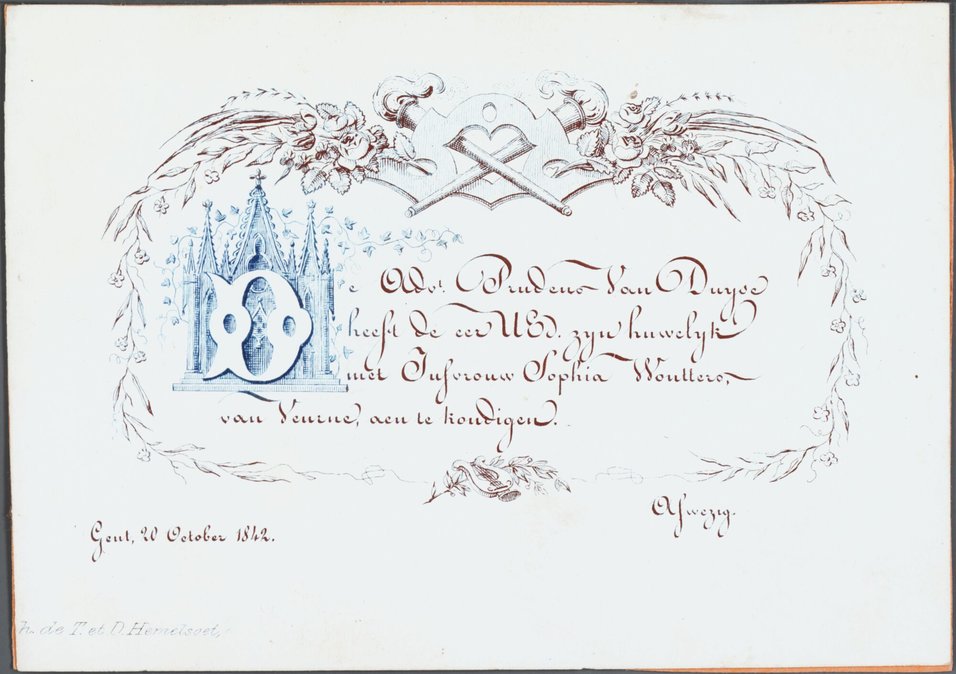 De Adv.t Prudens Van Duyse
heeft de eer UEd. zyn huwelyk
met Jufvrouw Sophia Woutters,
van Veurne, aen te kondigen.
Afwezig.
Gent, 20 October 1842.
h. de T. et D. Hemelsoet,